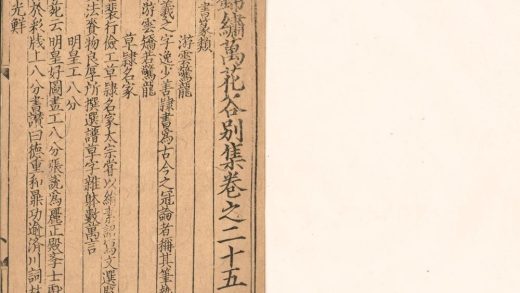 錦繡萬花谷別集卷之二十五
書篆類
游雲驚龍
羲之字逸少善隷書爲古今之冠論者稱其筆勢
游雲矯若驚龍
草隷名家
裴行檢工草隷名家太宗嘗以絹素詔寫文選
法賚物良厚所撰選譜草字雜躰數萬言
明皇工八分
苑云明皇好圖畫工八分張説爲麗正殿學士獻
於彩牋上八分書讃曰德重和鼎功逾済川詞林
光鮮